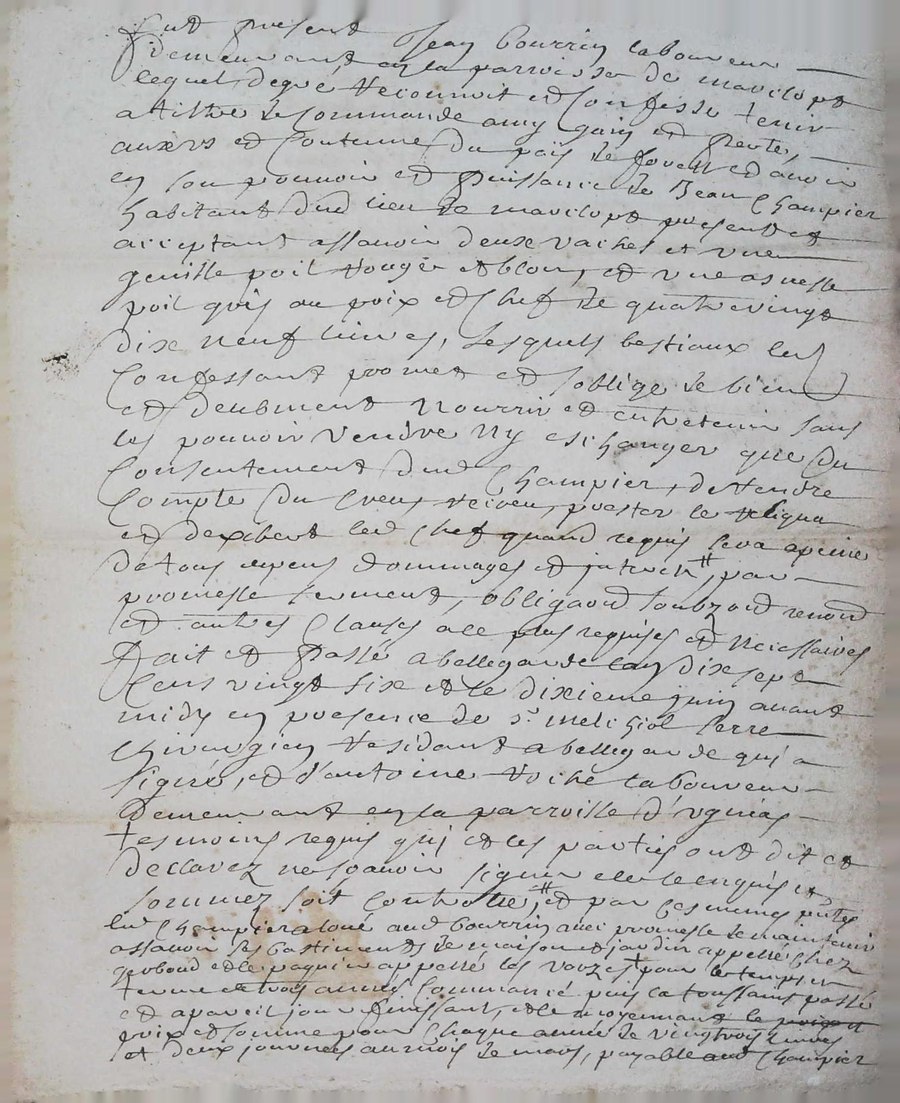 Fut present Jean Bourrin laboureur
demeurant en la parroisse de maviloup
lequel de gré reconnoit et confesse tenir
a tiltre de commande amy gain et perte,
aux us et coutume du païs de forest et avoir
en son pouvoir et puissance de Jean Champier
habitant dud lieu de maviloup present et
acceptant assavoir deux vaches et une
genisse poil rouge et blon, et une asnesse
poil gris au prix et chef de quatre vingt
dix neuf livres, lesquels bestiaux led
Confessant promet et soblige de bien
et deubment nourrir et entretenir sans
les pouvoir vendre ny eschanger que du
Consentement dud Champier, de rendre
Compte du creu, prester le reliqua
et dexibent led chef quand requis sera a peine
de tous depens dommages et interets #, par
promesse serment, obligaōn soubzōn renōn
et autres clauses a ce plus requises et necessaires
fait et passé a bellegarde lan dix sept
Cens vingt six et le dixieme juin avant
midy en presence de Sr. melchiol serre
chirurgien residant a bellegarde qui a
signé, et d'antoine roche laboureur
demeurant en la parroisse d'
tesmoins requis qui et les parties ont dit et
declarez ne scavoir signer de ce enquis et
sommez soit controllé # et par ces mesmes pntes
led Champier a loué aud bourrin avec promesse de maintenir
assavoir les bastiments de maison et jardin appellé chez
et le paquier appellé les vorzes + pour le temps et
terme de trois années commancé puis la toussans passée
et a pareil jour finissant, et le moyennant le prix et
prix et somme pour chaque année de vingt trois livres
et deux journées au mois de mars, payable aud Champier